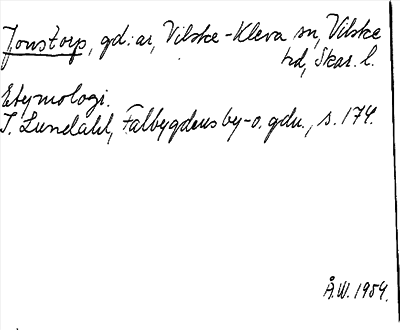 Jonstorp, gd:ar, Vilske-Kleva sn, Vilske
hd, Skar. l.
Etymologi.
I. Lundahl, Falbygdens by-o. gdn., s. 174.
Å.W. 1954.